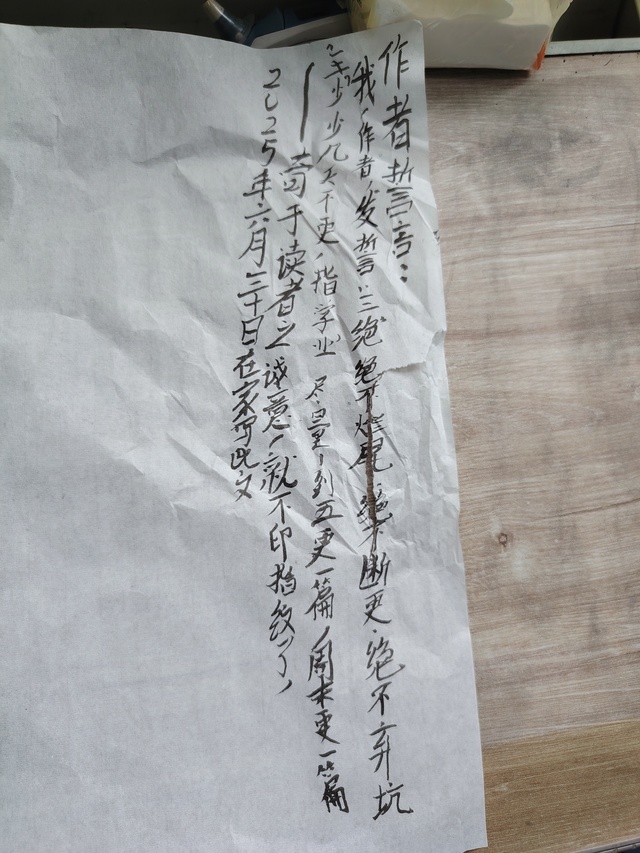 作者誓言：
我，作者，发誓：三绝 绝不烂尾 绝不断更、绝不弃坑
少几天不更，指学业 尽量1到五更一篇，周末更一篇
苟于读者之诚意，就不印指纹了，
2025年六月三十日在家写此文